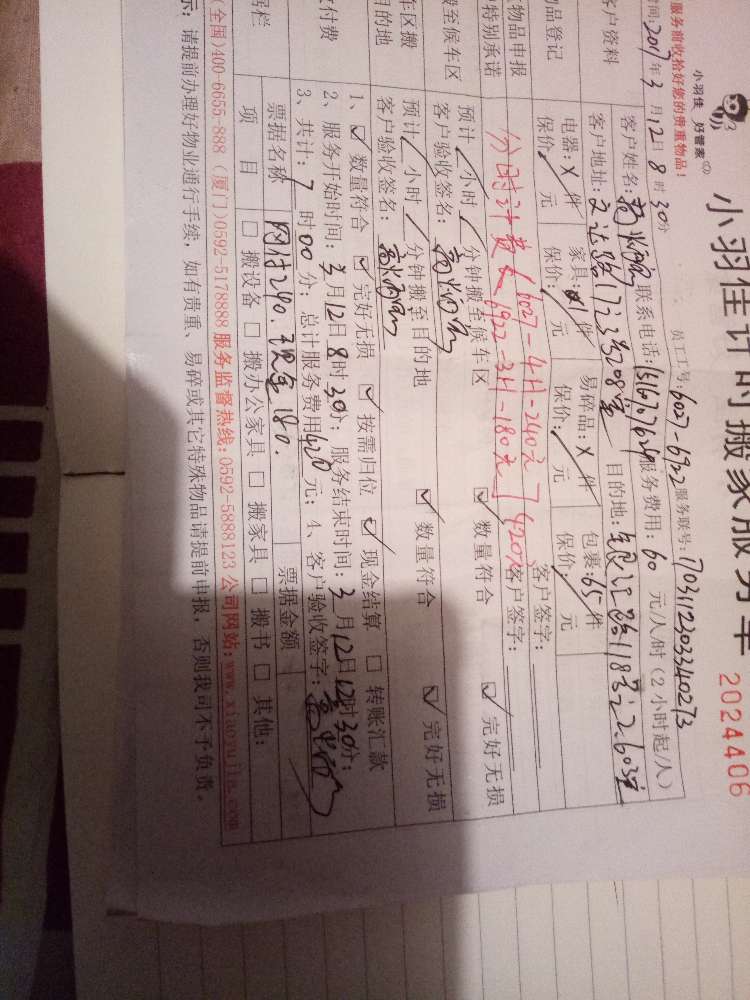 小羽佳 好管家
小羽佳计时搬家服务单
2024406
服务前收拾好您的贵重物品!
时间:2017年3月12日8时30分
员工工号:6027-6922
服务联号:703112303340273
客户资料
客户姓名:
联系电话:
服务费用:60元/人/时(2小时起/人)
客户地址:文达路173号208室
目的地:
品登记
电器:X件
家具:
易碎品:X件
包裹:65件
保价: 元
保价: 元
保价: 元
保价: 元
物品申报
特别承诺
分时计费
6027-4H-240元
6922-3H-180元
420元
客户签字:
客户签字:
搬至候车区
预计 小时 分钟搬至候车区
☑数量符合
☑完好无损
客户验收签名:
车区搬
目的地
预计 小时 分钟搬至目的地
☑数量符合
☑完好无损
客户验收签名:
付费
1、☑数量符合 ☑完好无损 ☑按需归位 ☑现金结算 □转账汇款
2、服务开始时间:3月12日8时30分;服务结束时间:3月12日12时30分;
3、共计:7时00分;总计服务费用420元;4、客户验收签字:
票据名称
网付240.现金180.
票据金额
项目
□搬设备 □搬办公家具 □搬家具 □搬书 □其他:
(全国)400-6655-888 (厦门)0592-5178888 服务监督热线:0592-5888123 公司网站:www.xiaoyujia.com
示:请提前办理好物业通行手续,如有贵重、易碎或其它特殊物品请提前申报,否则我司不予负责。